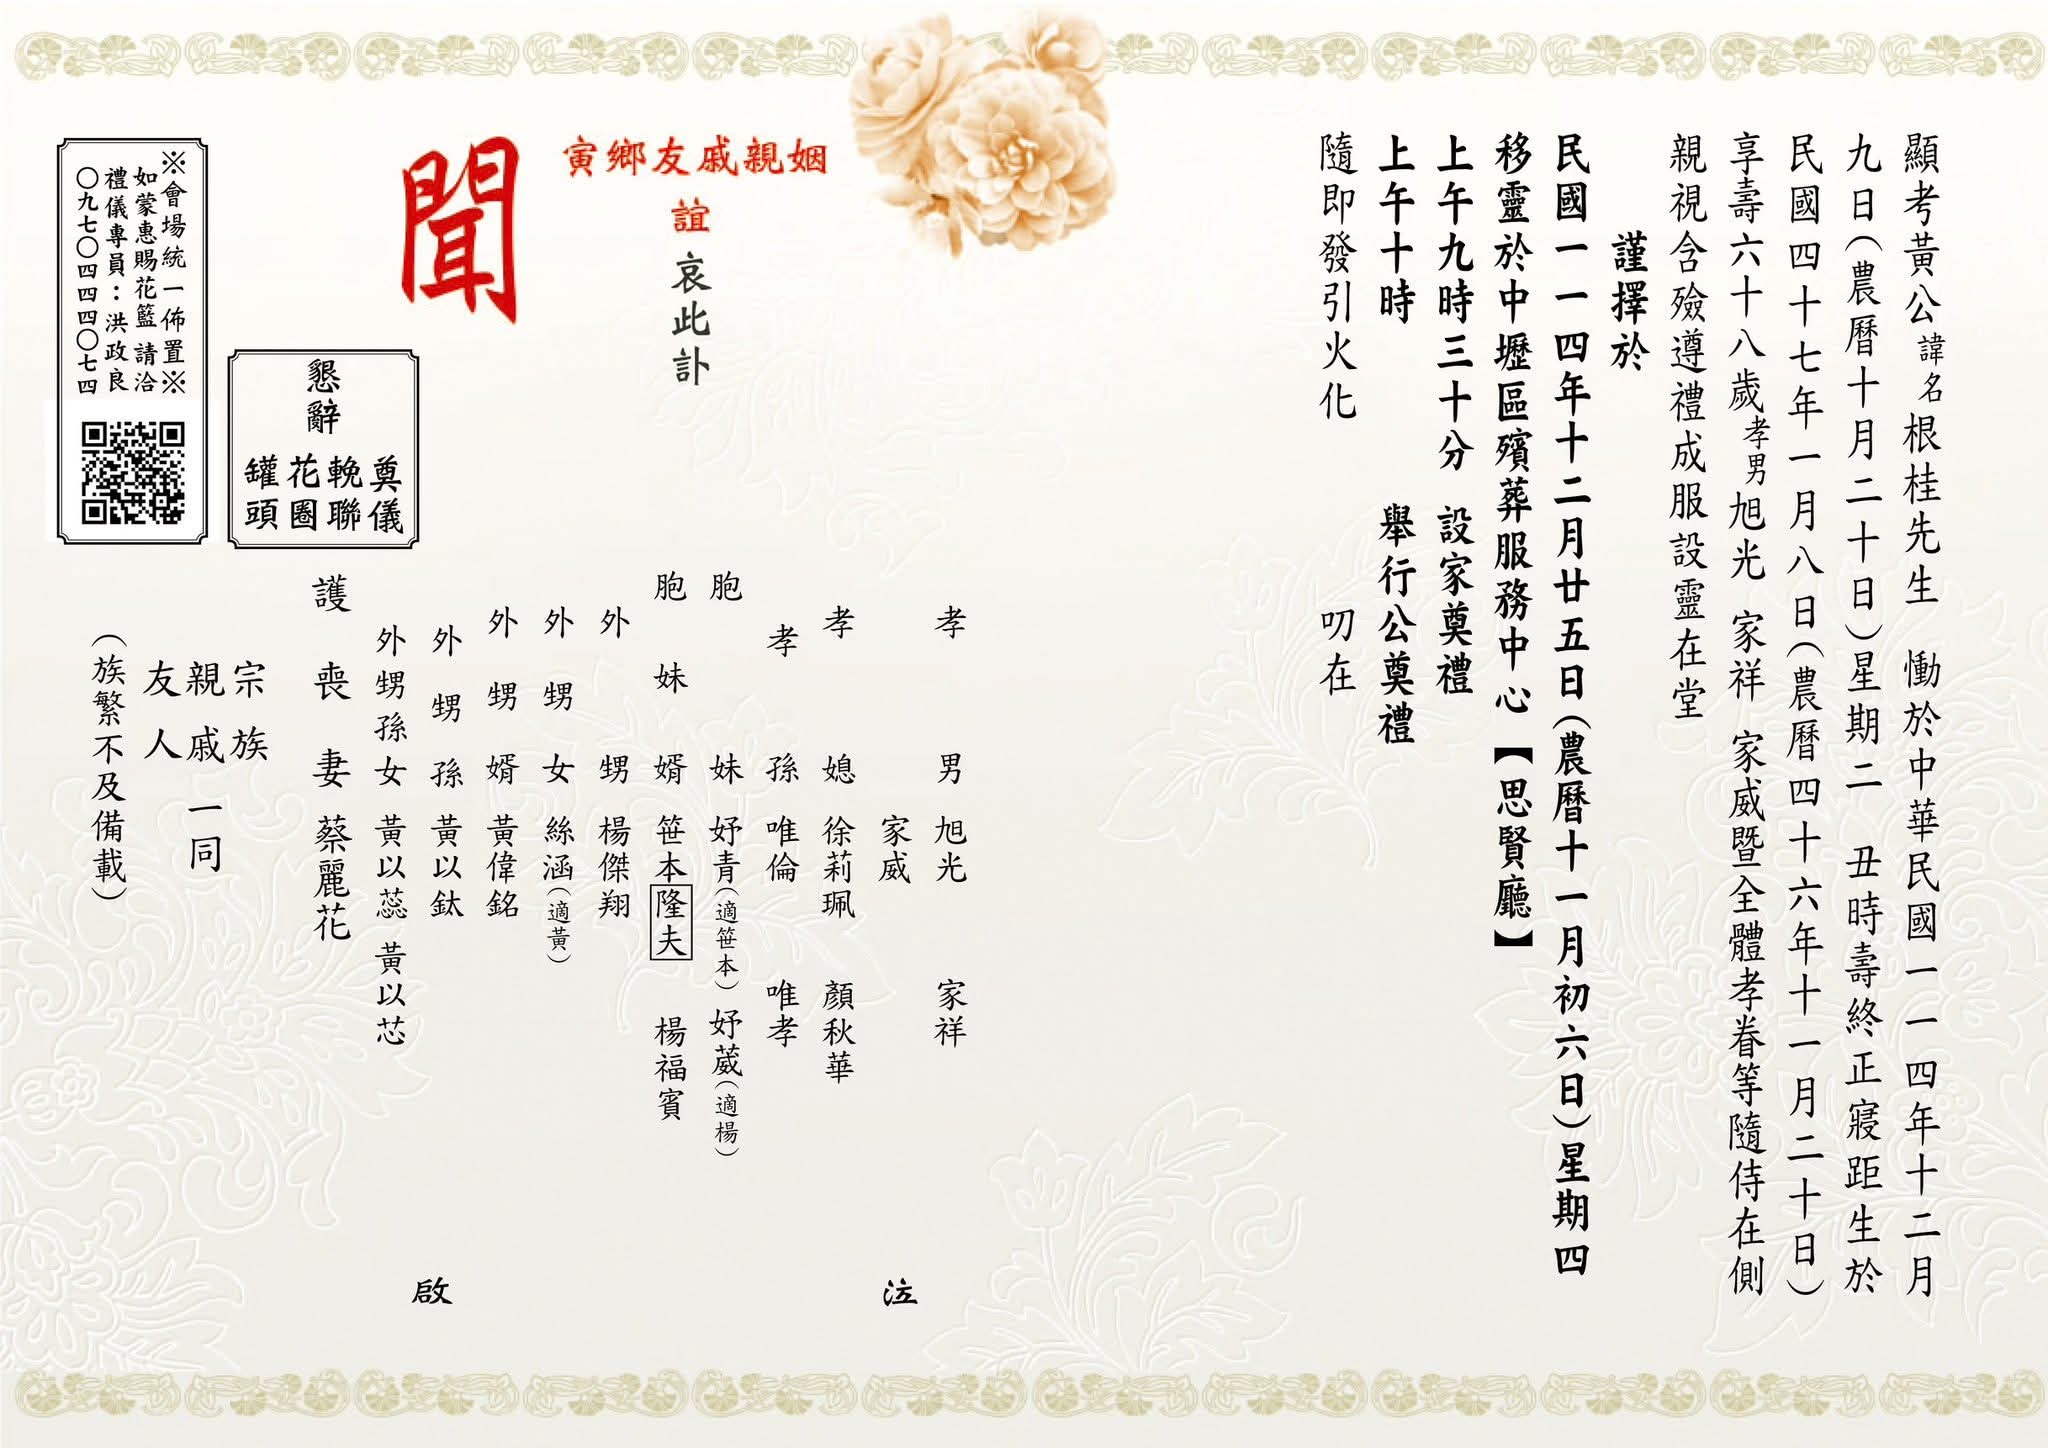 顯考黃公諱名根桂先生　慟於中華民國一一四年十二月
九日(農曆十月二十日)星期二　丑時壽終正寢距生於
民國四十七年一月八日(農曆四十六年十一月二十日)
享壽六十八歲孝男旭光　家祥　家威暨全體孝眷等隨侍在側
親視含殮遵禮成服設靈在堂
謹擇於
民國一一四年十二月廿五日(農曆十一月初六日)星期四
移靈於中壢區殯葬服務中心【思賢廳】
上午九時三十分　設家奠禮
上午十時　舉行公奠禮
隨即發引火化　叨在
姻親戚友鄉寅
誼
哀此訃
聞
孝男　旭光　家祥
家威
孝媳　徐莉珮　顏秋華
孝孫　唯倫　唯孝
胞妹　妤青(適笹本)　妤葳(適楊)
胞妹婿　笹本隆夫　楊福賓
外甥　楊傑翔
外甥女　絲涵(適黃)
外甥婿　黃偉銘
外甥孫　黃以鈦
外甥孫女　黃以蕊　黃以芯
護喪妻　蔡麗花
宗族
親戚　一同
友人
(族繁不及備載)
泣
啟
懇辭
奠儀
輓聯
花圈
罐頭
※會場統一佈置※
如蒙惠賜花籃請洽
禮儀專員：洪政良
〇九七〇四四四〇七四